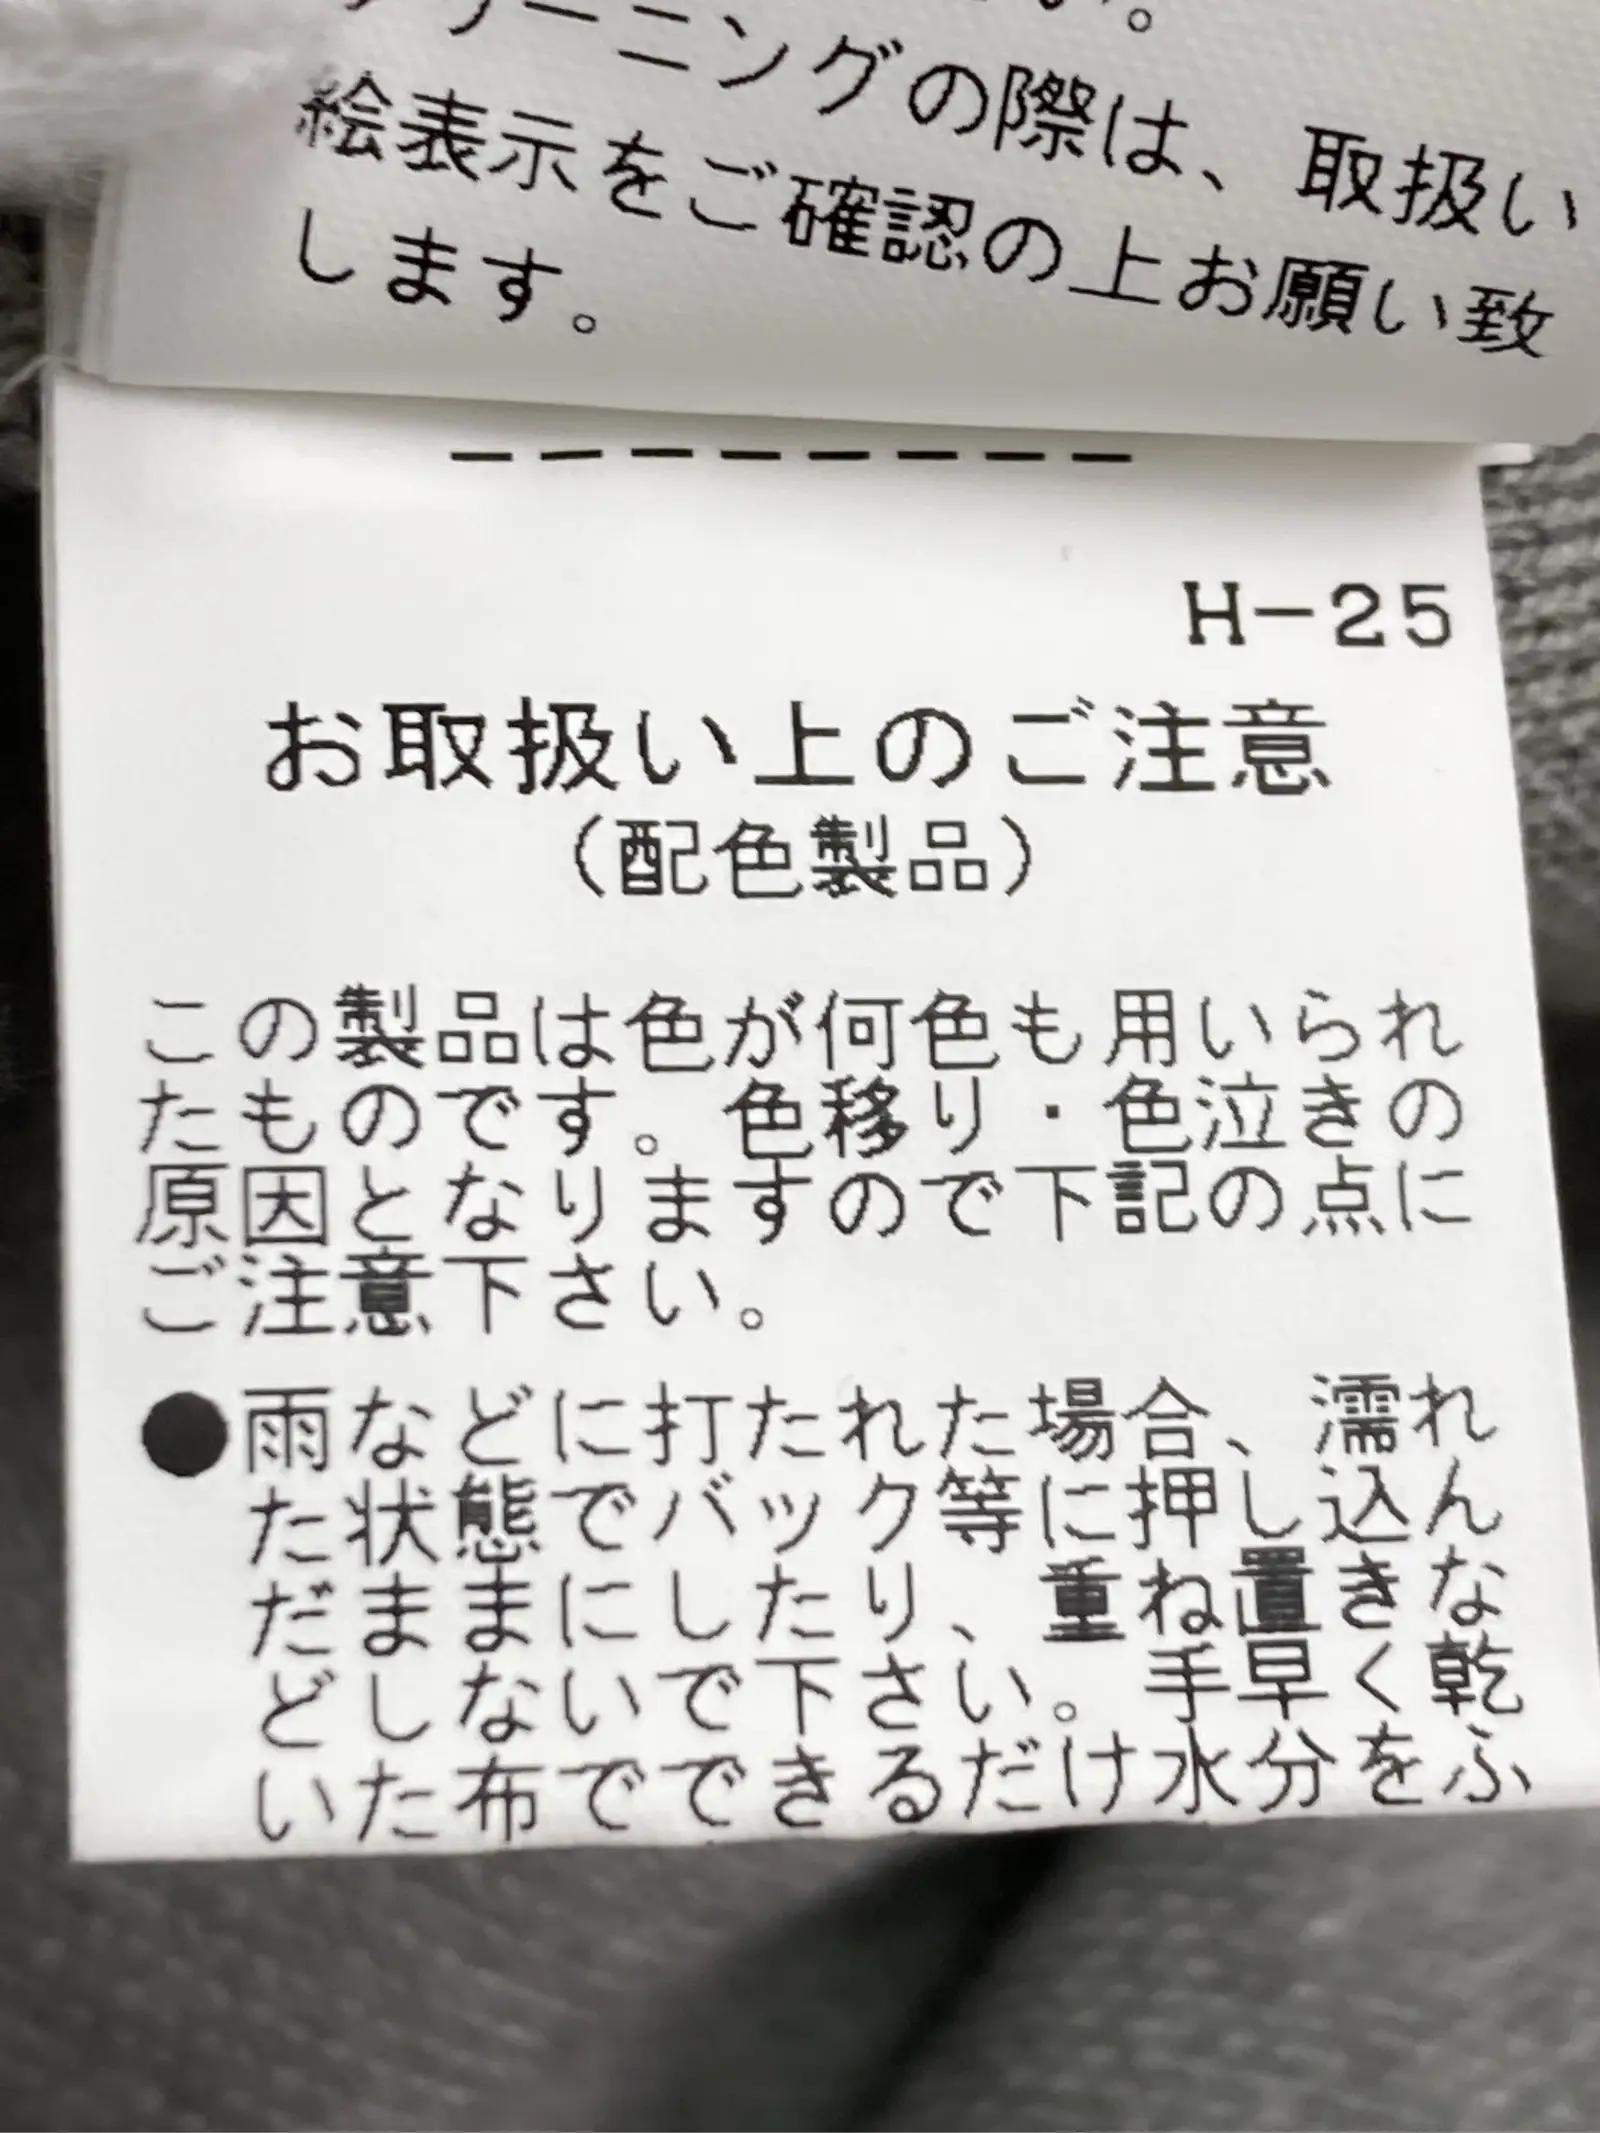 い。
クリーニングの際は、取扱い
絵表示をご確認の上お願い致
します。
H-25
お取扱い上のご注意
（配色製品）
この製品は色が何色も用いられ
たものです。色移り・色泣きの
原因となりますので下記の点に
ご注意下さい。
●雨などに打たれた場合、濡れ
た状態でバック等に押し込ん
だままにしたり、重ね置きな
どしないで下さい。手早く乾
いた布でできるだけ水分をふ